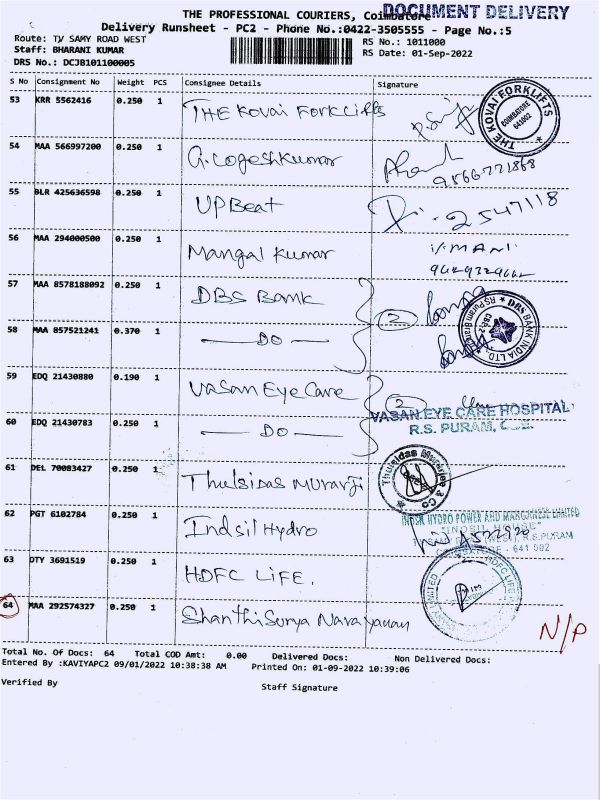 THE PROFESSIONAL COURIERS, Coimbatore
DOCUMENT DELIVERY
Delivery Runsheet - PC2 - Phone No.:0422-3505555 - Page No.:5
Route: T)/ SAMY ROAD WEST
RS No.: 1011000
Staff: BHARANI KUMAR
RS Date: 01-Sep-2022
DRS No.: DCJB101100005
S No Consignment No Weight PCS Consignee Details Signature
53 KRR 5562416 0.250 1 THE Kovai Forklifts
THE KOVAI FORKLIFTS COIMBATORE 641002
54 MAA 566997200 0.250 1 G. Logeshkumar
9566771868
55 BLR 425636598 0.250 1 UPBeat
2547118
56 MAA 294000500 0.250 1 Mangal Kumar
V. MANI
57 MAA 8578188092 0.250 1 DBS Bank
2
DBS BANK INDIA LTD. RS Puram Branch
58 MAA 857521241 0.370 1 — Do —
59 EDQ 21430880 0.190 1 Vasan Eye Care
2
VASAN EYE CARE HOSPITAL
R.S. PURAM,
60 EDQ 21430783 0.250 1 — Do —
61 DEL 70083427 0.250 1 Thulsidas Murarji
Thulsidas Murarjee & Co
62 PGT 6102784 0.250 1 Indsil Hydro
INDSIL HYDRO POWER AND MANGANESE LIMITED
"INDSIL HOUSE"
R.S.PURAM
641 002
63 OTY 3691519 0.250 1 HDFC LIFE.
HDFC LIFE
LIMITED
64 MAA 292574327 0.250 1 Shanthi Surya Narayanan
N/P
Total No. Of Docs: 64 Total COD Amt: 0.00 Delivered Docs: Non Delivered Docs:
Entered By :KAVIYAPC2 09/01/2022 10:38:38 AM Printed On: 01-09-2022 10:39:06
Verified By
Staff Signature